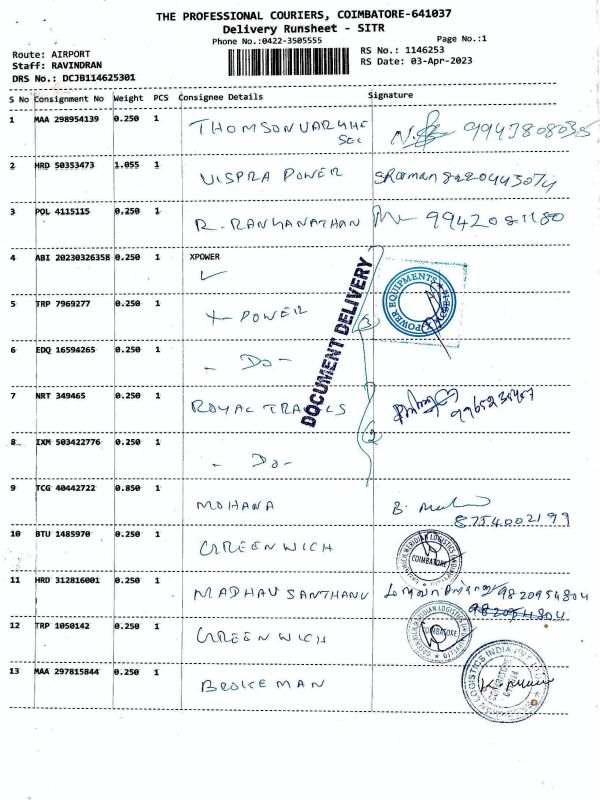 THE PROFESSIONAL COURIERS, COIMBATORE-641037
Delivery Runsheet - SITR
Phone No.:0422-3505555
Page No.:1
Route: AIRPORT
Staff: RAVINDRAN
DRS No.: DCJB114625301
RS No.: 1146253
RS Date: 03-Apr-2023
S No Consignment No Weight PCS Consignee Details Signature
1 MAA 298954139 0.250 1 THOMSON VARGHE 9943808035
2 HRD 50353473 1.055 1 VISPRA POWER
3 POL 4115115 0.250 1 R. RANGANATHAN 9942081180
4 ABI 20230326358 0.250 1 XPOWER
POWER EQUIPMENTS
DOCUMENT DELIVERY
5 TRP 7969277 0.250 1 X POWER
3
6 EDQ 16594265 0.250 1 - Do -
7 NRT 349465 0.250 1 ROYAL TRAVELS
2
8 IXM 503422776 0.250 1 - Do -
9 TCG 40442722 0.850 1 MOHANA B.
8754002199
10 BTU 1485970 0.250 1 GREENWICH
MERIDIAN LOGISTICS COIMBATORE
11 HRD 312816001 0.250 1 MADHAV SANTHANU 9820954804
9820954804
12 TRP 1050142 0.250 1 GREENWICH
MERIDIAN LOGISTICS COIMBATORE
13 MAA 297815844 0.250 1 BROKEMAN
LOGISTICS INDIA